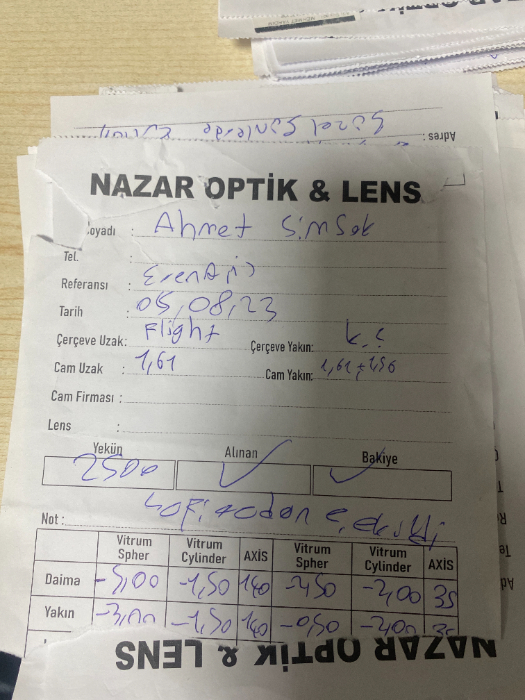 NAZAR OPTİK
Adres :
Güzel Günlerde
NAZAR OPTİK & LENS
oyadı : Ahmet Şimşek
Tel. :
Referansı :
Tarih : 05,08,23
Çerçeve Uzak: Flight Çerçeve Yakın: K.Ç
Cam Uzak : 1,61 Cam Yakın: 1,61 + 1,56
Cam Firması :
Lens :
Yekün Alınan Bakiye
2500 ✓ ✓
Not :
Vitrum Spher Vitrum Cylinder AXİS Vitrum Spher Vitrum Cylinder AXİS
Daima -5,00 -1,50 140 -2,50 -2,00 35
Yakın -3,00 -1,50 140 -0,50 -2,00 35
NAZAR OPTİK & LENS